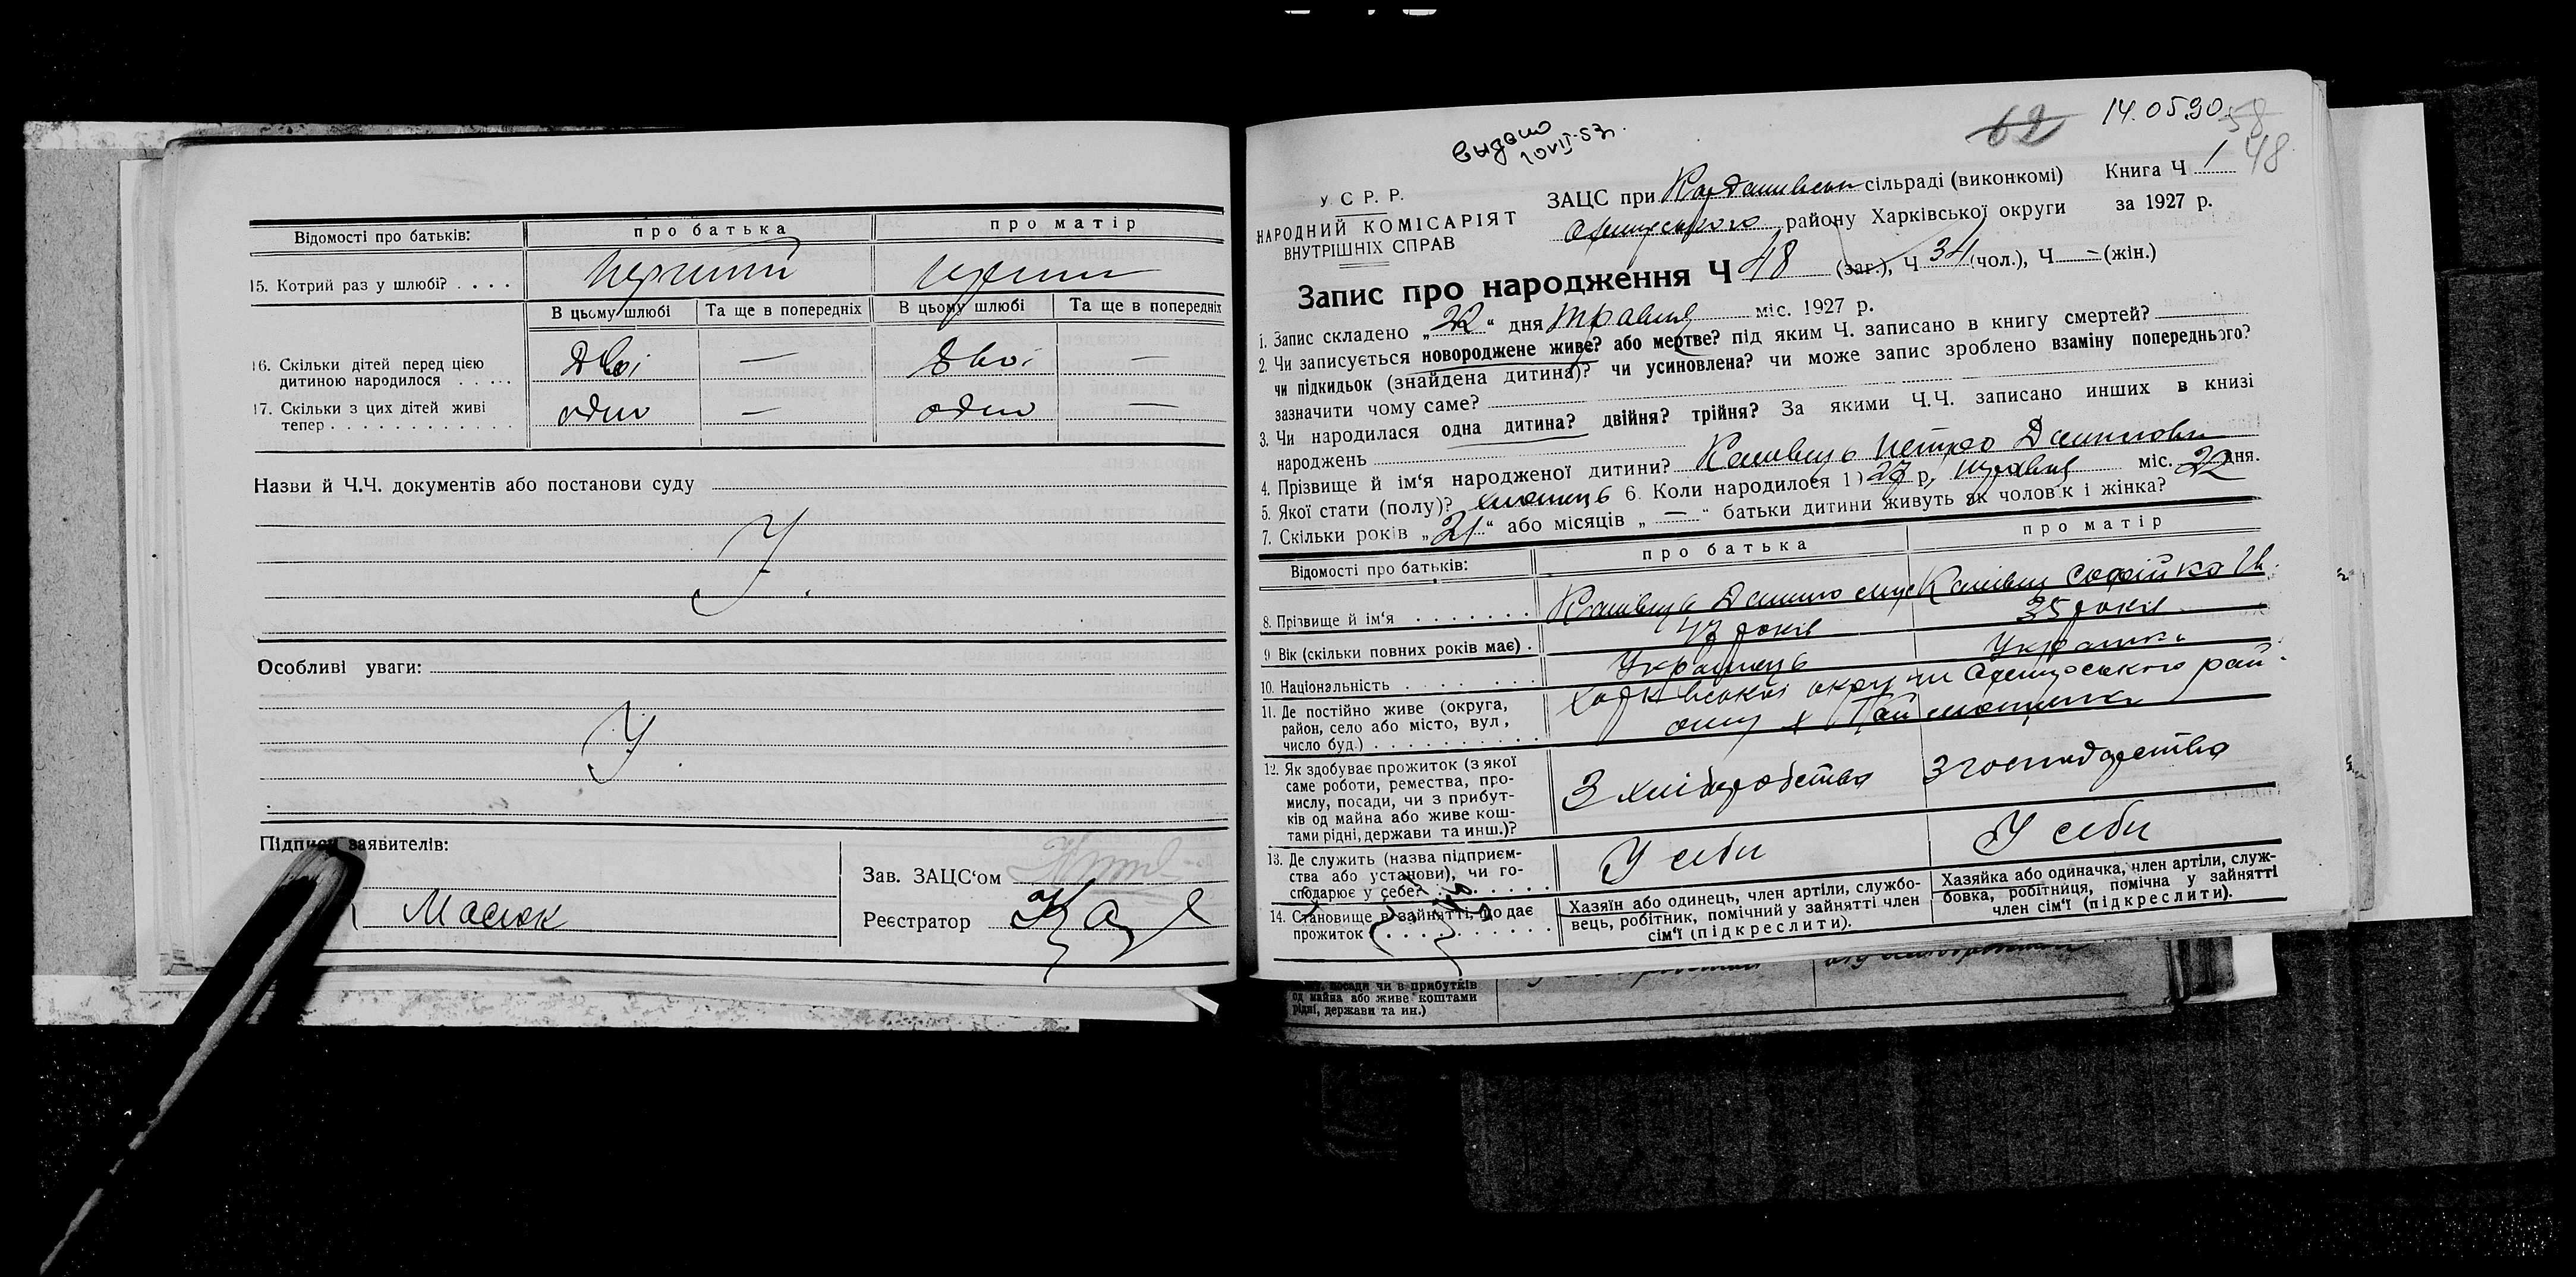 Відомості про батьків: про батька про матір
15. Котрий раз у шлюбі? . . . . Перший перш
В цьому шлюбі Та ще в попередніх В цьому шлюбі Та ще в попередніх
16. Скільки дітей перед цією
дитиною народилося . . . . . Двоі — Двоі —
17. Скільки з цих дітей живі
тепер . . . . . . . . . . . . . одно — одно —
Назви й Ч.Ч. документів або постанови суду
Особливі уваги:
Підписи заявителів:
Зав. ЗАЦС‘ом
Масюк
Реєстратор
выдано
10 VII-53г.
62
14.05.90
58
48
У С Р. Р.
НАРОДНИЙ КОМІСАРІЯТ
ВНУТРІШНІХ СПРАВ
ЗАЦС при сільраді (виконкомі) Книга Ч 1
району Харківської округи за 1927 р.
Запис про народження Ч 48 (заг.), Ч 34 (чол.), Ч — (жін.)
1. Запис складено „22“ дня травня міс. 1927 р.
2. Чи записується новороджене живе? або мертве? під яким Ч. записано в книгу смертей?
чи підкидьок (знайдена дитина)? чи усиновлена? чи може запис зроблено взаміну попереднього?
зазначити чому саме?
3. Чи народилася одна дитина? двійня? трійня? За якими Ч.Ч. записано инших в книзі
народжень
4. Прізвище й ім‘я народженої дитини? Канівець Петро Данилови
5. Якої стати (полу)? хлопець 6. Коли народилося 1927 р, травня міс. 22 дня.
7. Скільки років „21“ або місяців „—“ батьки дитини живуть як чоловік і жінка?
Відомості про батьків: про батька про матір
8. Прізвище й ім‘я . . . . . . . Канівець Данило Канівец Софійка Ів.
9 Вік (скільки повних років має) . 47 років 35 років
10. Національність . . . . . . . Українець Українка
11. Де постійно живе (округа,
район, село або місто, вул,
число буд.) . . . . . . . . . . . Харківськоі округи рай
12. Як здобуває прожиток (з якої
саме роботи, ремества, про-
мислу, посади, чи з прибут-
ків од майна або живе кош-
тами рідні, держави та инш.)? З хліборобства З господарства
13. Де служить (назва підприєм-
ства або установи), чи го-
сподарює у себе? . . . . . . . У себи У себи
14. Становище в зайнятті, що дає
прожиток . . . . . . . . . . .
Хазяїн або одинець, член артіли, службо-
вець, робітник, помічний у зайнятті член
сім‘ї (підкреслити).
Хазяйка або одиначка, член артіли, служ-
бовка, робітниця, помічна у зайнятті
член сім‘ї (підкреслити).
посади чи в прибутків
од майна або живе коштами
рідні, держави та ин.)